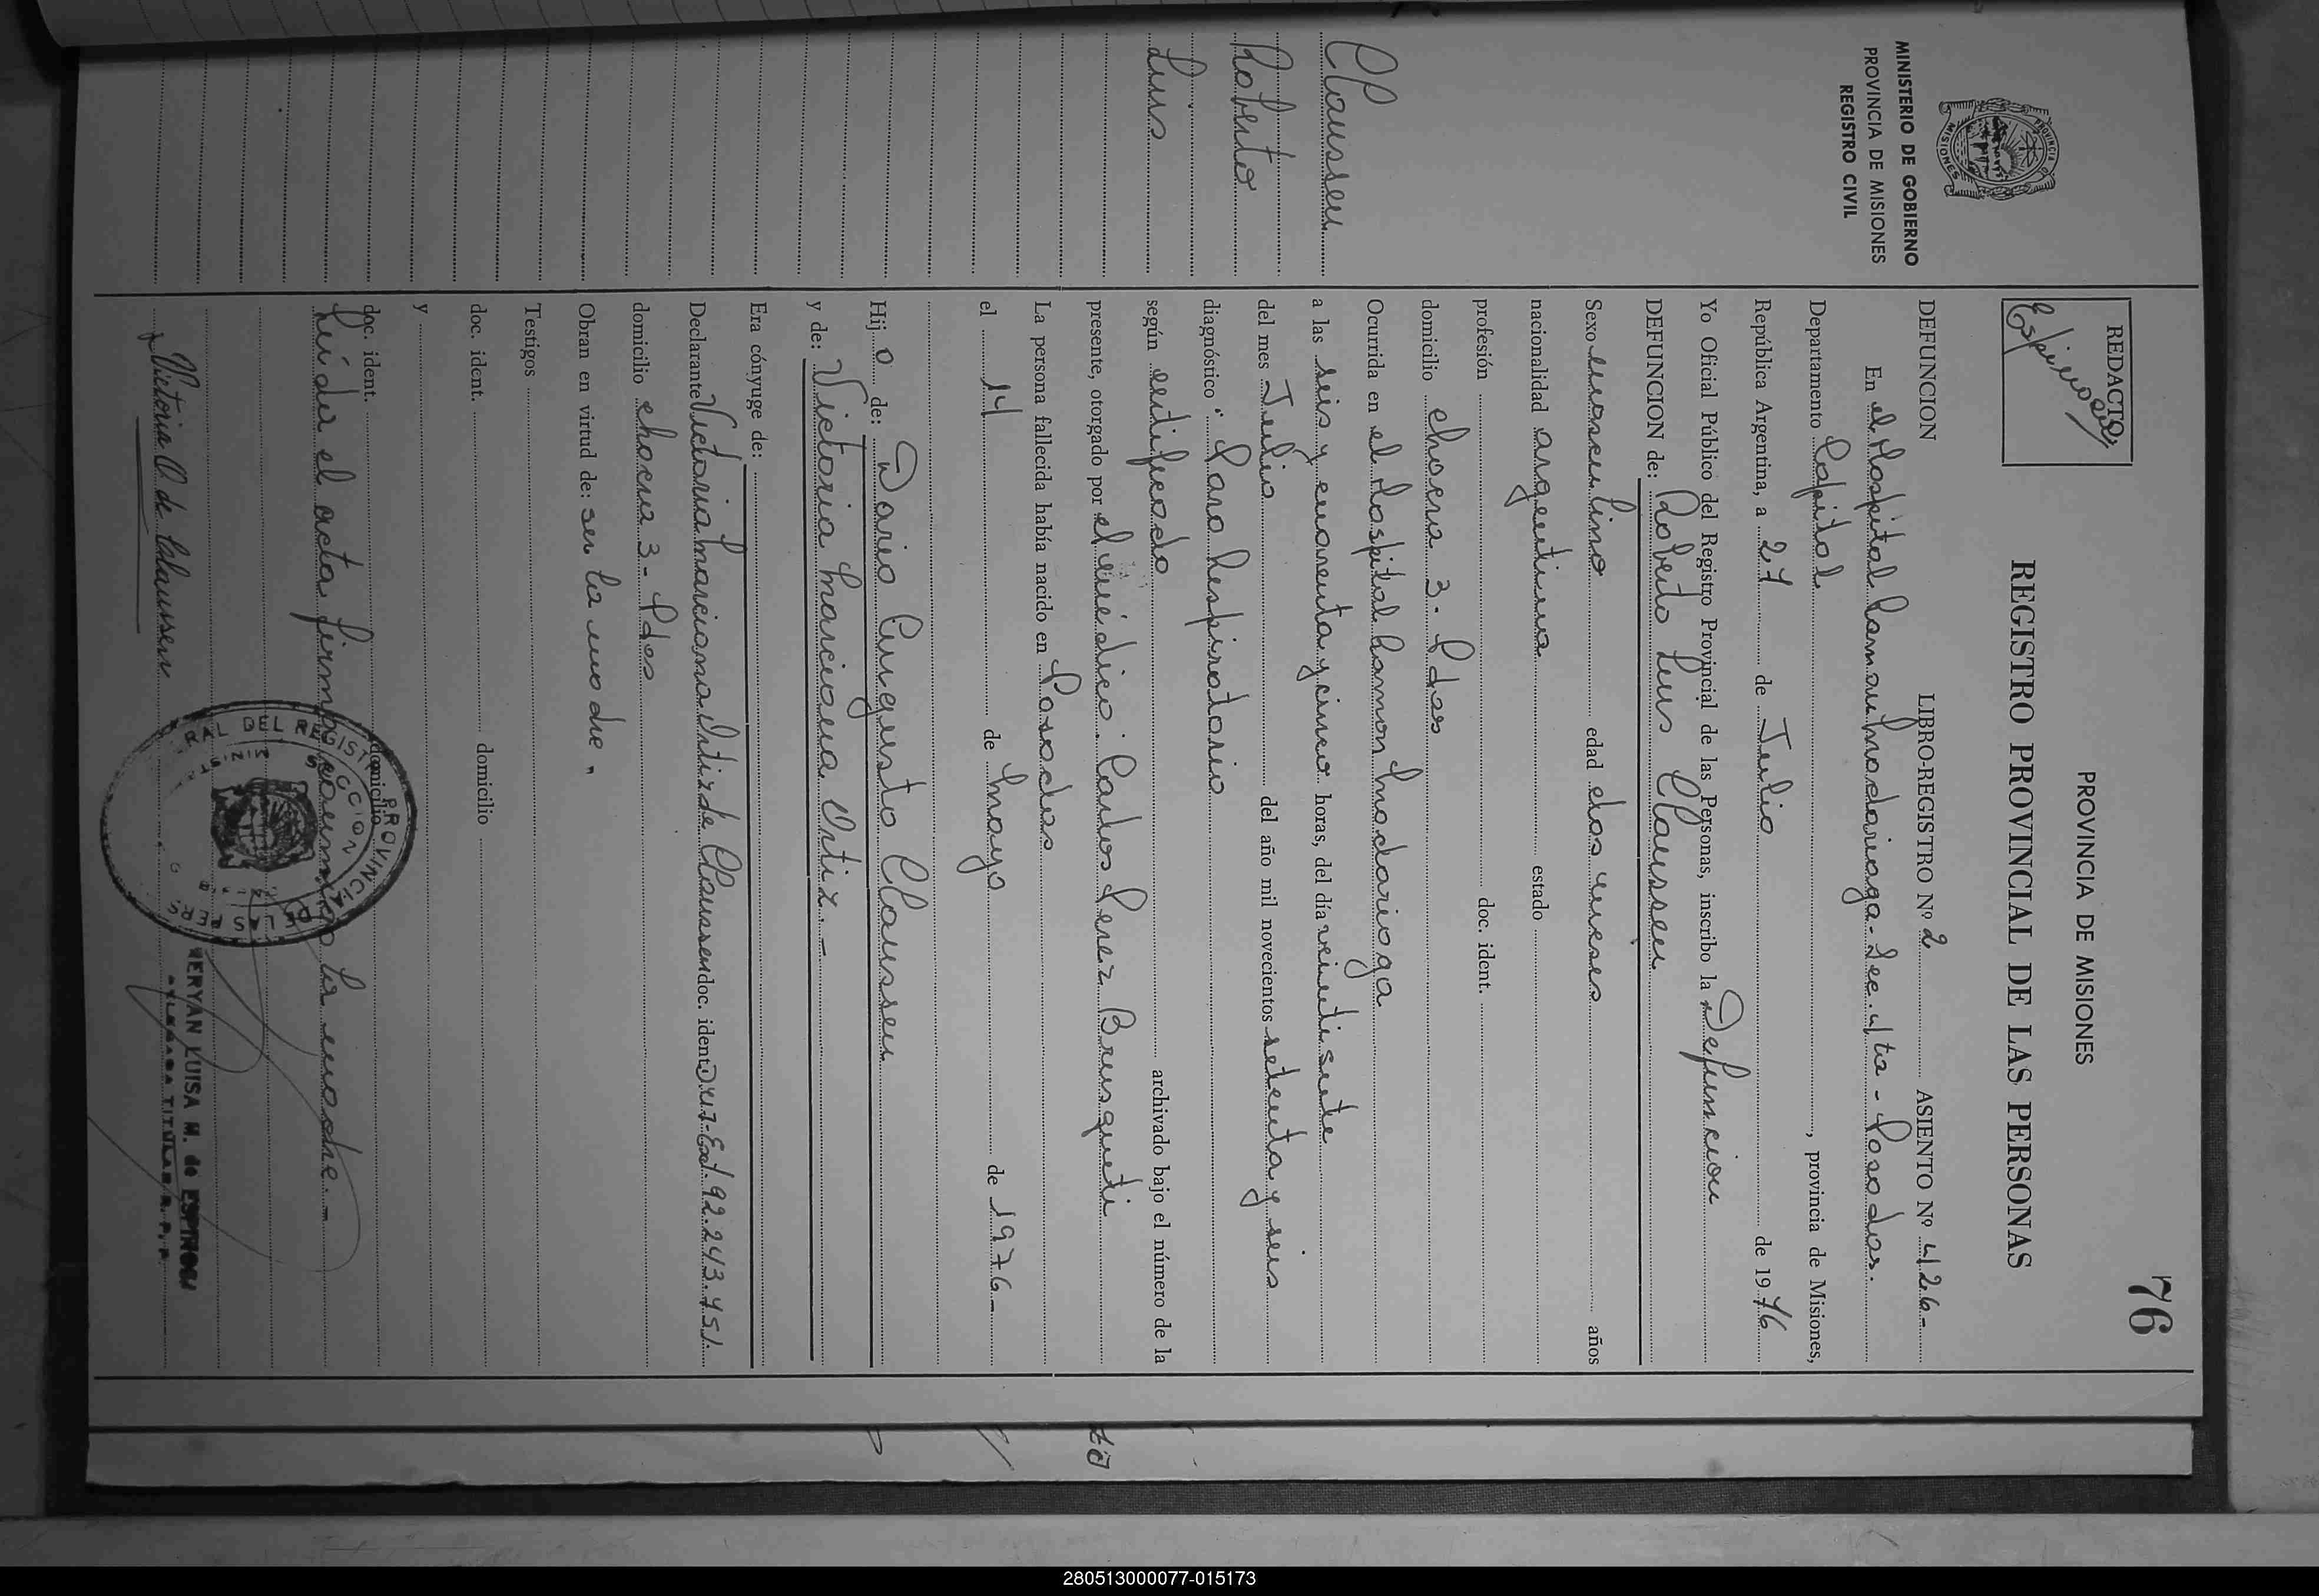 76
PROVINCIA DE MISIONES
REGISTRO PROVINCIAL DE LAS PERSONAS
REDACTO:
Espinosa
MINISTERIO DE GOBIERNO
PROVINCIA DE MISIONES
REGISTRO CIVIL
Claussen
Roberto
Luis
DEFUNCION LIBRO-REGISTRO Nº 2 ASIENTO Nº 426-
En el Hospital Ramon Madariaga - Sec. 4ta - Posadas.
Departamento Capital, provincia de Misiones,
República Argentina, a 27 de Julio de 1976
Yo Oficial Público del Registro Provincial de las Personas, inscribo la Defuncion
DEFUNCION de: Roberto Luis Claussen
Sexo masculino edad dos meses años
nacionalidad argentina estado
profesión doc. ident.
domicilio chacra 3 - Pdas
Ocurrida en el Hospital Ramon Madariaga
a las seis y cuarenta y cinco horas, del día veintisiete
del mes Julio del año mil novecientos setenta y seis
diagnóstico: Paro Respiratorio
según certificado archivado bajo el número de la
presente, otorgado por el médico: Carlos Perez Brusqueti
La persona fallecida había nacido en Posadas
el 14 de Mayo de 1976-
Hijo de: Dario Augusto Claussen
y de: Victoria Marciana Ortiz.-
Era cónyuge de:
Declarante Victoria Marciana Ortiz de Claussen doc. ident. D.N.I-Ext. 92.243.451.
domicilio chacra 3 - Pdas
Obran en virtud de: ser la madre.
Testigos
doc. ident. domicilio
y
doc. ident. domicilio
Leída el acta firma la madre.-
Victoria O de Claussen
PROVINCIAL DE LAS PERS
RAL DEL REGIST
SECCION
MERYAN LUISA M. de ESPINOSA
DELEGADA TITULAR R. P. P.
280513000077-015173